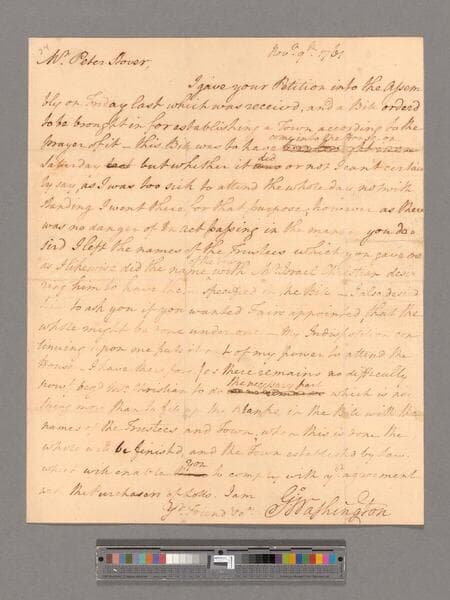 Nov.r 9th 1761
Mr. Peter Stover,
I gave your Petition into the Assem
bly on Friday last which was received, and a Bill orderd
to be brought in for establishing a Town according to the
prayer of it — this Bill was to have
Saturday last but whether it did or not I cant certain
ly say, as I was too sick to attend the whole day, not with
standing I went there for that purpose, however as there
was no danger of an act passing in the manner you de
sird I left the names of the Trustees which you gave me
of the Town
as I likewise did the name with Mr. Israel Christian desi
ring him to have the specified in the Bill — I also desird
to ask you if you wanted Fairs appointed, that the
whole might be done under one — My Indisposition con
tinuing upon me puts it out of my power to attend the
House — I have there remains no difficulty
the necessary part
now begd Mr. Christian to do which is no
thing more than to fill up the blanks in the Bill with the
names of the Trustees and Town, when this is done the
whole will be finishd, and the Town establishd by Law
you
which will enable to comply with yr. agreement
with the Purchasers of Lots. I am
Yr. Friend &ca.
Go Washington